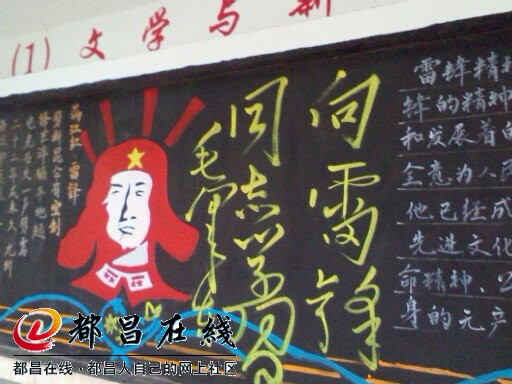 (1)文学与新
雷锋精
锋的精神
和发展着的
全意为人民
他已经成
先进文化
命精神、公
身的无产
向雷锋
同志学习
毛泽东
满江红·雷锋
都昌在线
都昌在线·都昌人自己的网上社区